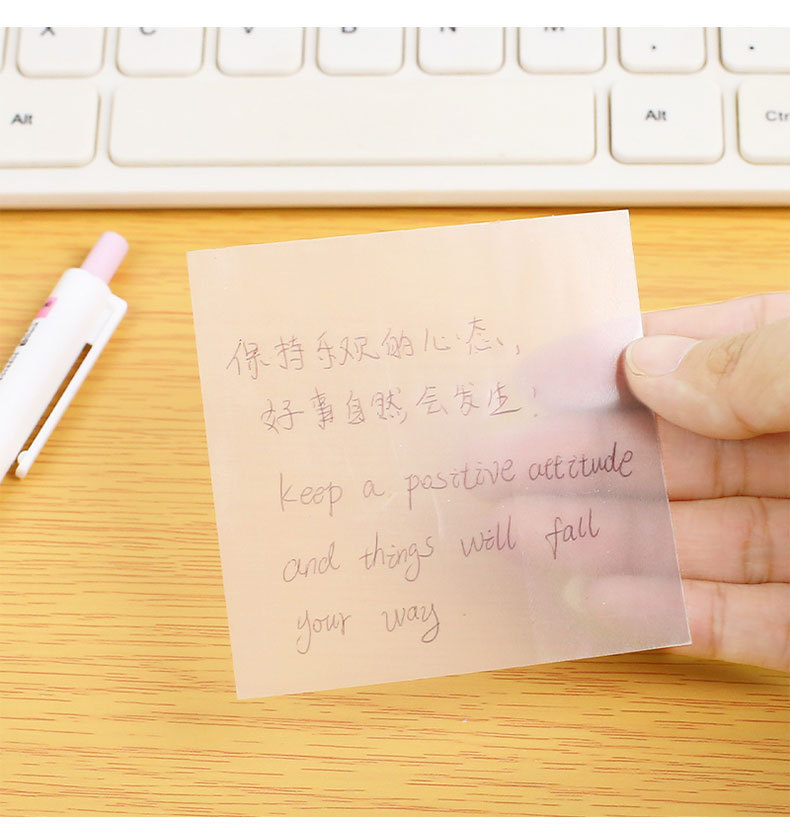 X C V B N M , .
Alt Alt Ctr
保持乐观的心态,
好事自然会发生!
keep a positive attitude
and things will fall
your way.